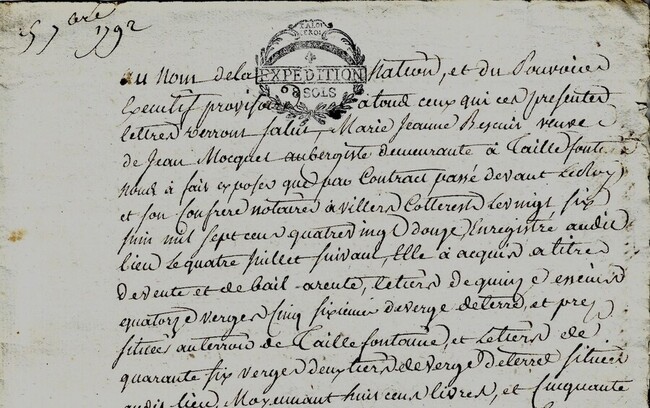 5 7bre 1792
LA LOI
LE ROI
EXPEDITION
SOLS
au nom de la Nation, et du Pouvoir
Executif provisoi a tous ceux qui ces presentes
lettres verront Salut, Marie Jeanne veuve
de Jean Mocquet aubergiste demeurante à Taillefont
nous à fait exposer que par Contract passé devant LeRoy
et son Confrere notaires à Villers Cotterest Le vingt six
juin mil sept cens quatre vingt douze Enregistré audit
lieu Le quatre Juillet suivant, Elle à acquis a titre
de vente et de bail arente, Le tiers de quinze esseins
quatorze verges Cinq sixieme de verge de terre, et prez
situées au terroir de Taillefontaine, et Le tiers de
quarante six verges deux tiers de verge de terre situées
audit lieu, Moyennant huit cens livres, et Cinquante